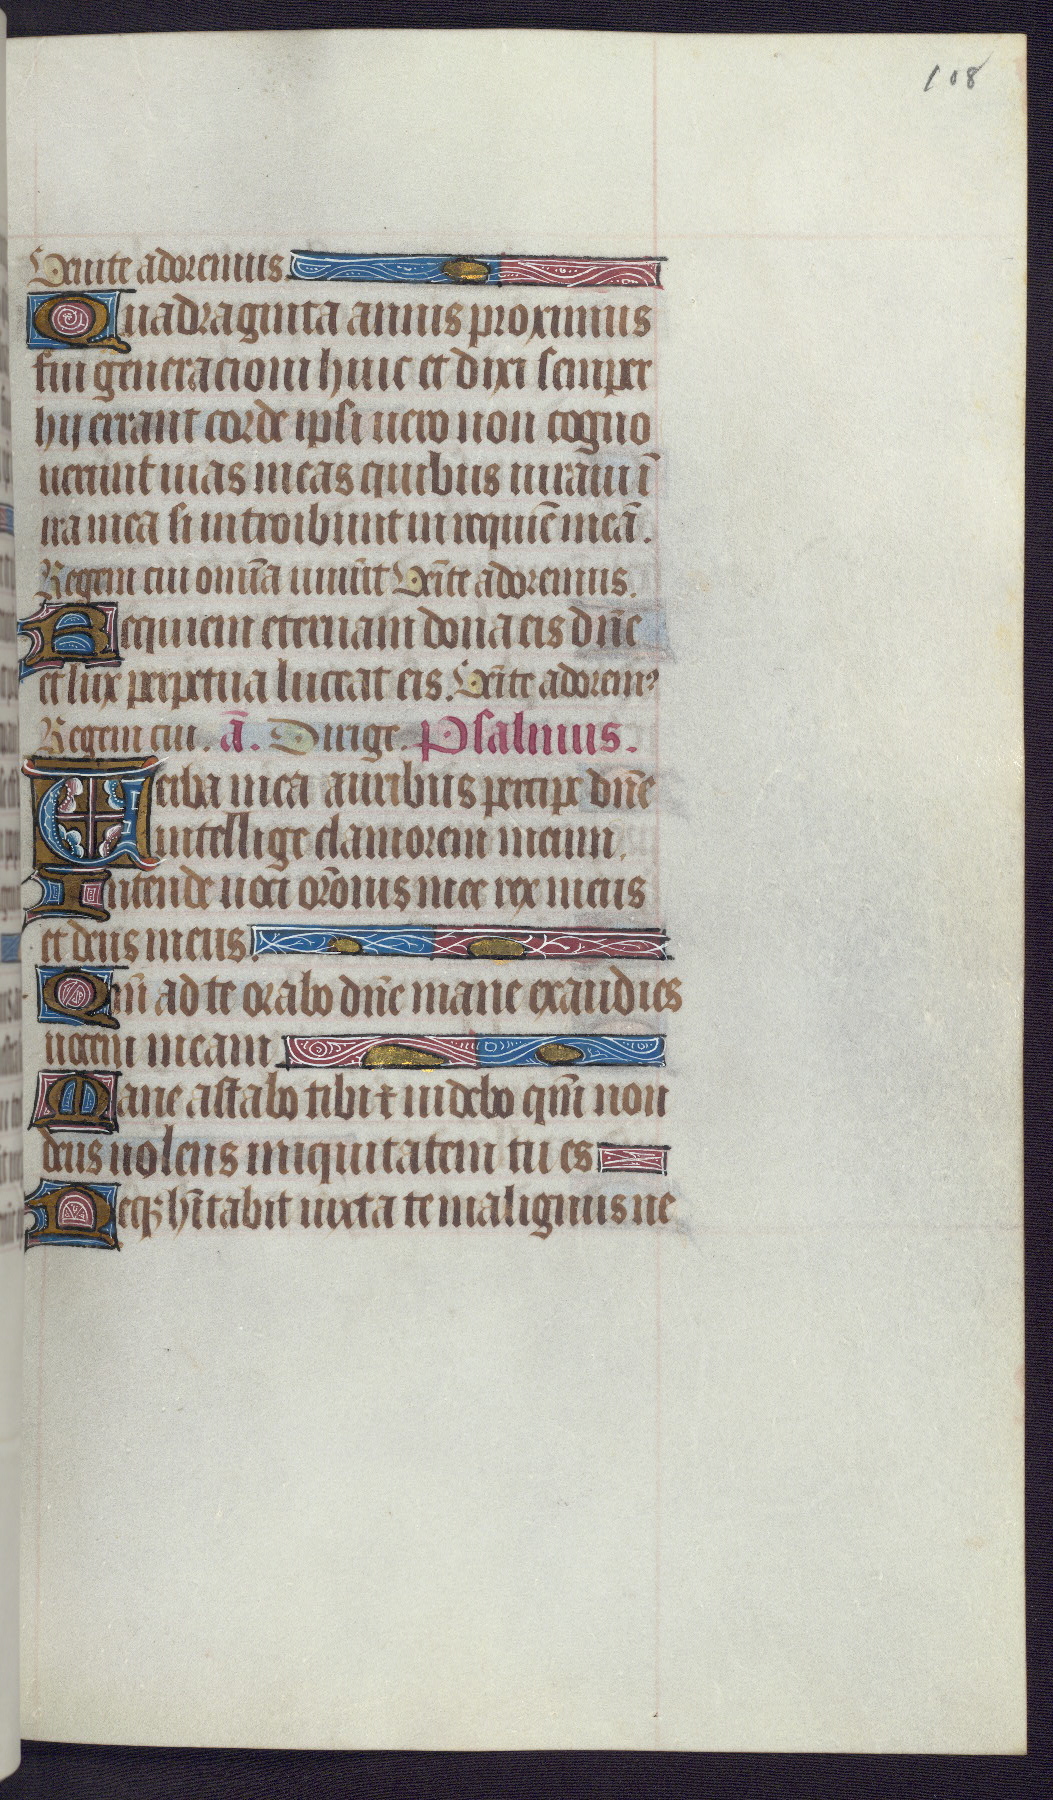 108
Venite adoremus
Quadraginta annis proximus
fui generacioni huic et dixi semper
hij errant corde ipsi vero non cogno
uerunt uias meas quibus iuraui ī
ira mea si introibunt in requiē meā.
Regem cui om̄ia uiuūt Veīte adoremus.
Requiem eternam dona eis dn̄e
et lux perpetua luceat eis. Veīte adoremꝰ
Regem cui. ā. Dirige. Psalmus.
Verba mea auribus percipe dn̄e
intellige clamorem meum.
Intende uoci or̄onis mee rex meus
et deus meus.
Qm̄ ad te orabo dn̄e mane exaudies
uocem meam
Mane astabo tibi ⁊ uidebo qm̄ non
deus uolens iniquitatem tu es
Neqꝫ hītabit iuxta te malignus ne